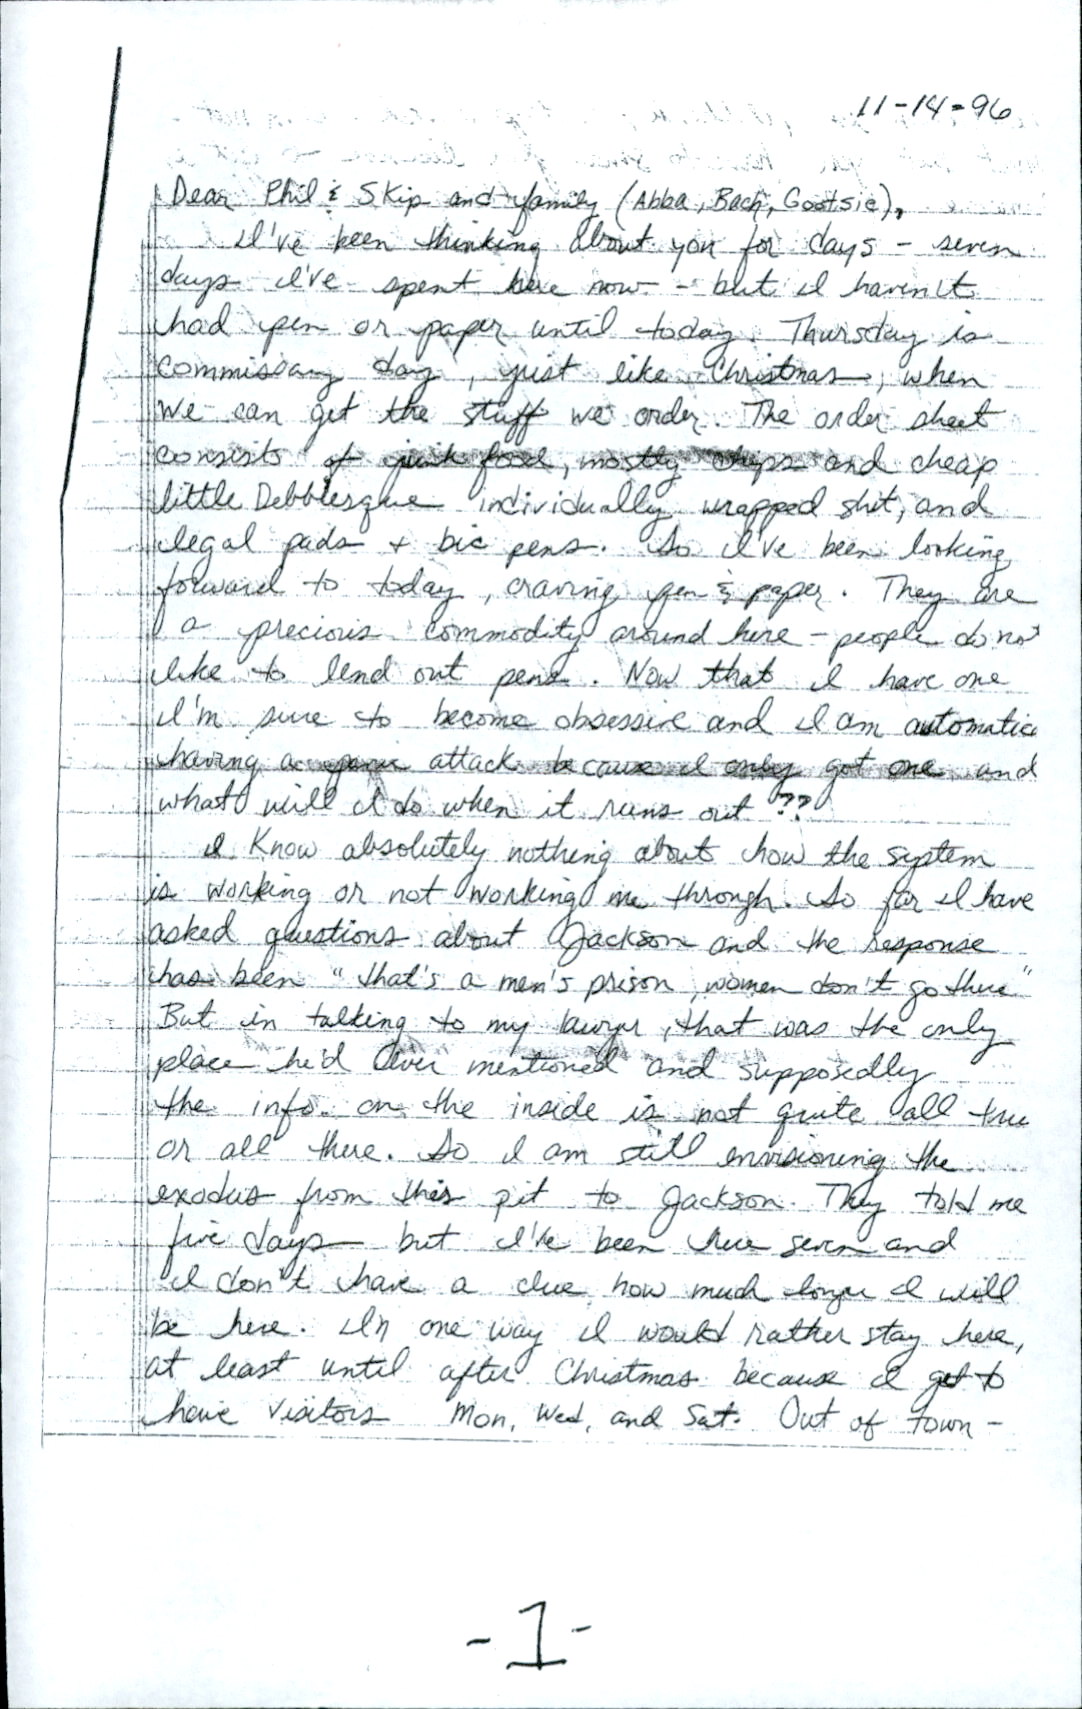 11-14-96
Dear Phil & Skip and family (Abba, Bach, Gootsie),
I've been thinking about you for days - seven
days I've spent here now - but I haven't
had pen or paper until today. Thursday is
commissary day, just like Christmas, when
we can get the stuff we order. The order sheet
consists of junk food, mostly chips and cheap
little Debblesque individually wrapped shit, and
legal pads + bic pens. So I've been looking
forward to today, craving pen & paper. They are
a precious commodity around here - people do not
like to lend out pens. Now that I have one
I'm sure to become obsessive and I am automatic
having a panic attack because I only got one and
what will I do when it runs out ??
I know absolutely nothing about how the system
is working or not working me through. So far I have
asked questions about Jackson and the response
has been "that's a men's prison, women don't go there"
But in talking to my lawyer, that was the only
place he'd ever mentioned and supposedly
the info. on the inside is not quite all true
or all there. So I am still envisioning the
exodus from this pit to Jackson. They told me
five days but I've been here seven and
I don't have a clue how much longer I will
be here. In one way I would rather stay here,
at least until after Christmas because I get to
have visitors Mon, Wed, and Sat. Out of town -
-1-